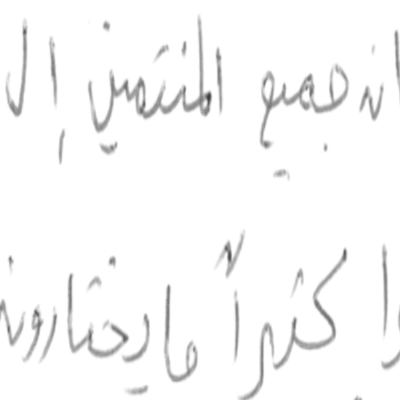 ان جميع المنتمين إلى
وا كثيراً ما يختارون